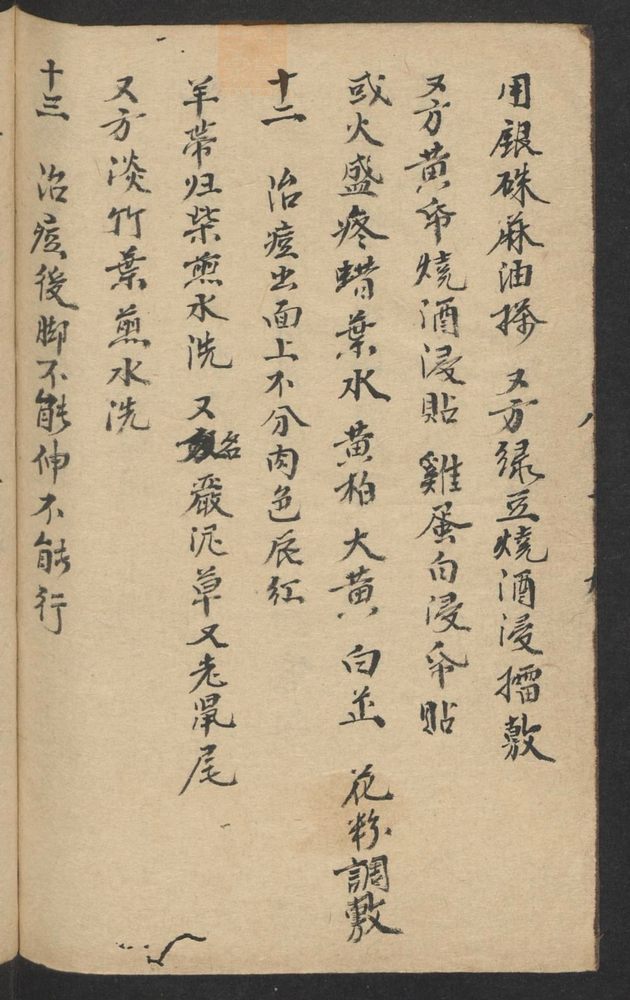 用銀硃麻油搽 又方緑豆燒酒浸擂敷
又方黄帋燒酒浸貼 雞蛋白浸帋貼
或火盛疼蜡葉水黄柏大黄白芷 花粉調敷
十二 治痘出面上不分肉色辰紅
羊帶归柴煎水洗 又名嚴泥草又老鼠尾
又方淡竹葉煎水洗
十三 治痘後脚不能伸不能行